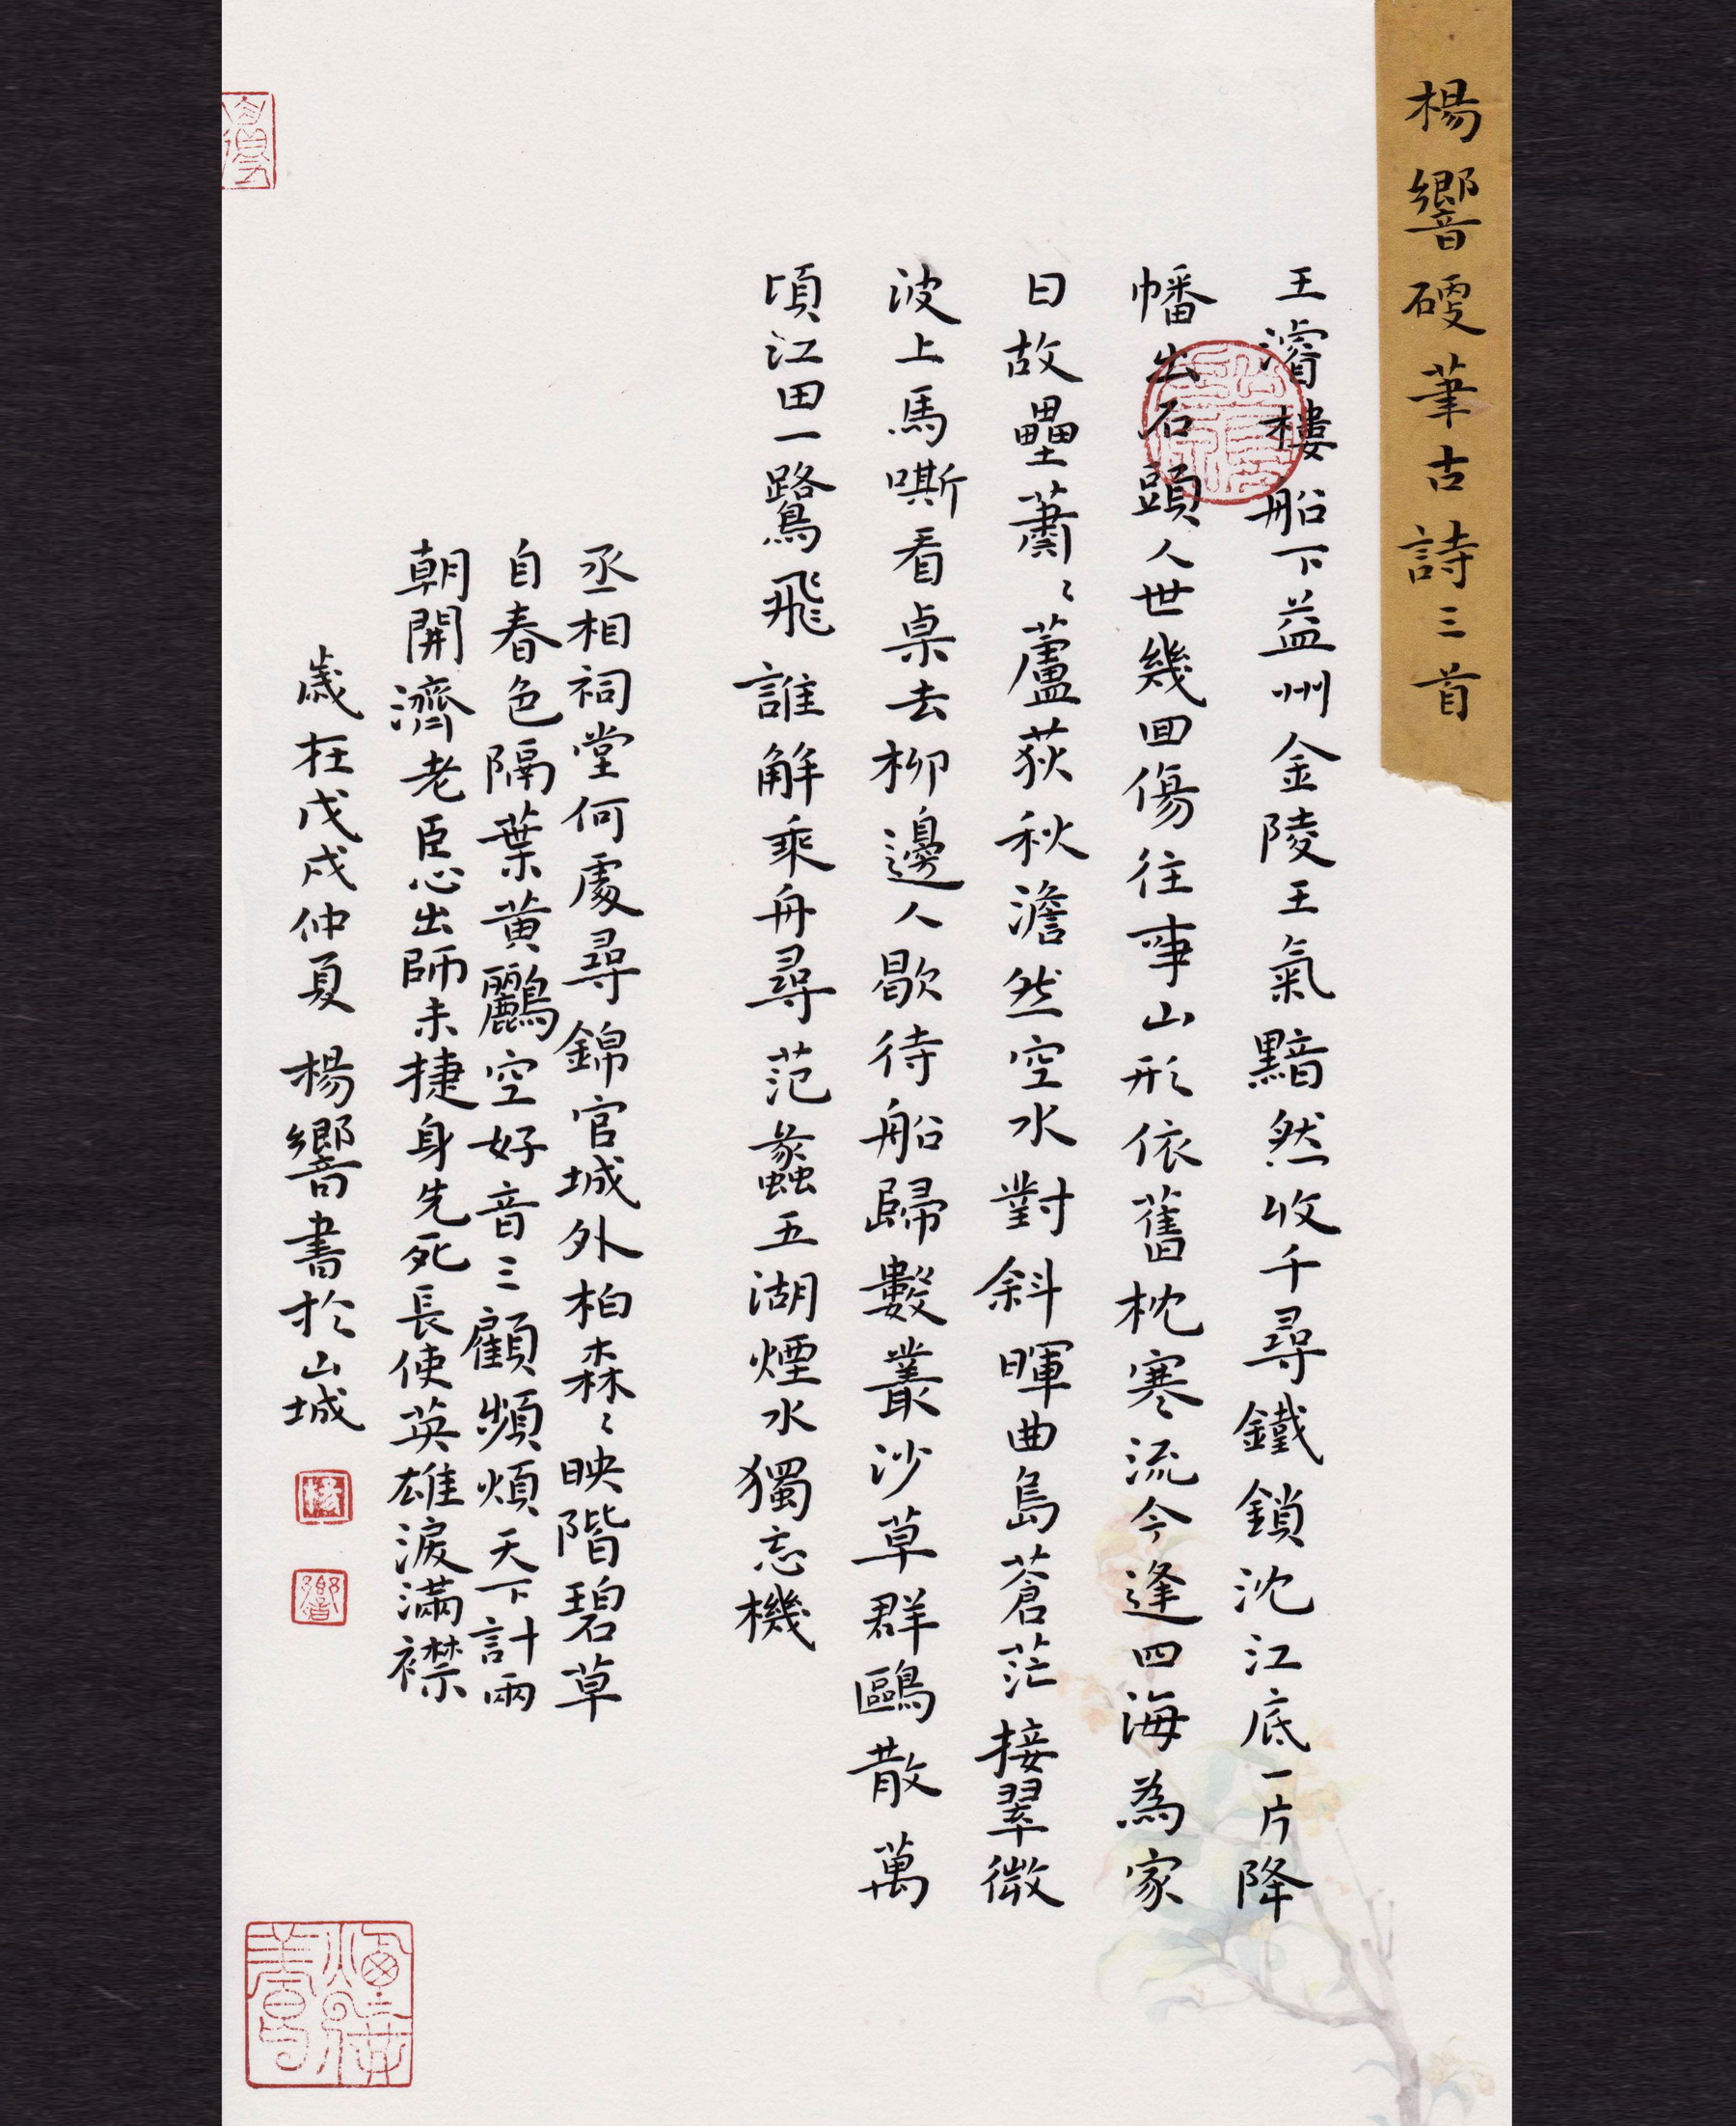 楊響硬筆古詩三首
王濬樓船下益州金陵王氣黯然收千尋鐵鎖沈江底一片降
幡出石頭人世幾回傷往事山形依舊枕寒流今逢四海為家
日故壘蕭〻蘆荻秋澹然空水對斜暉曲島蒼茫接翠微
波上馬嘶看桌去柳邊人歇待船歸數叢沙草群鷗散萬
頃江田一鷺飛誰解乘舟尋范蠡五湖煙水獨忘機
丞相祠堂何處尋錦官城外柏森〻映階碧草
自春色隔葉黃鸝空好音三顧頻煩天下計兩
朝開濟老臣心出師未捷身先死長使英雄淚滿襟
歲在戊戌仲夏 楊響書於山城
楊
響